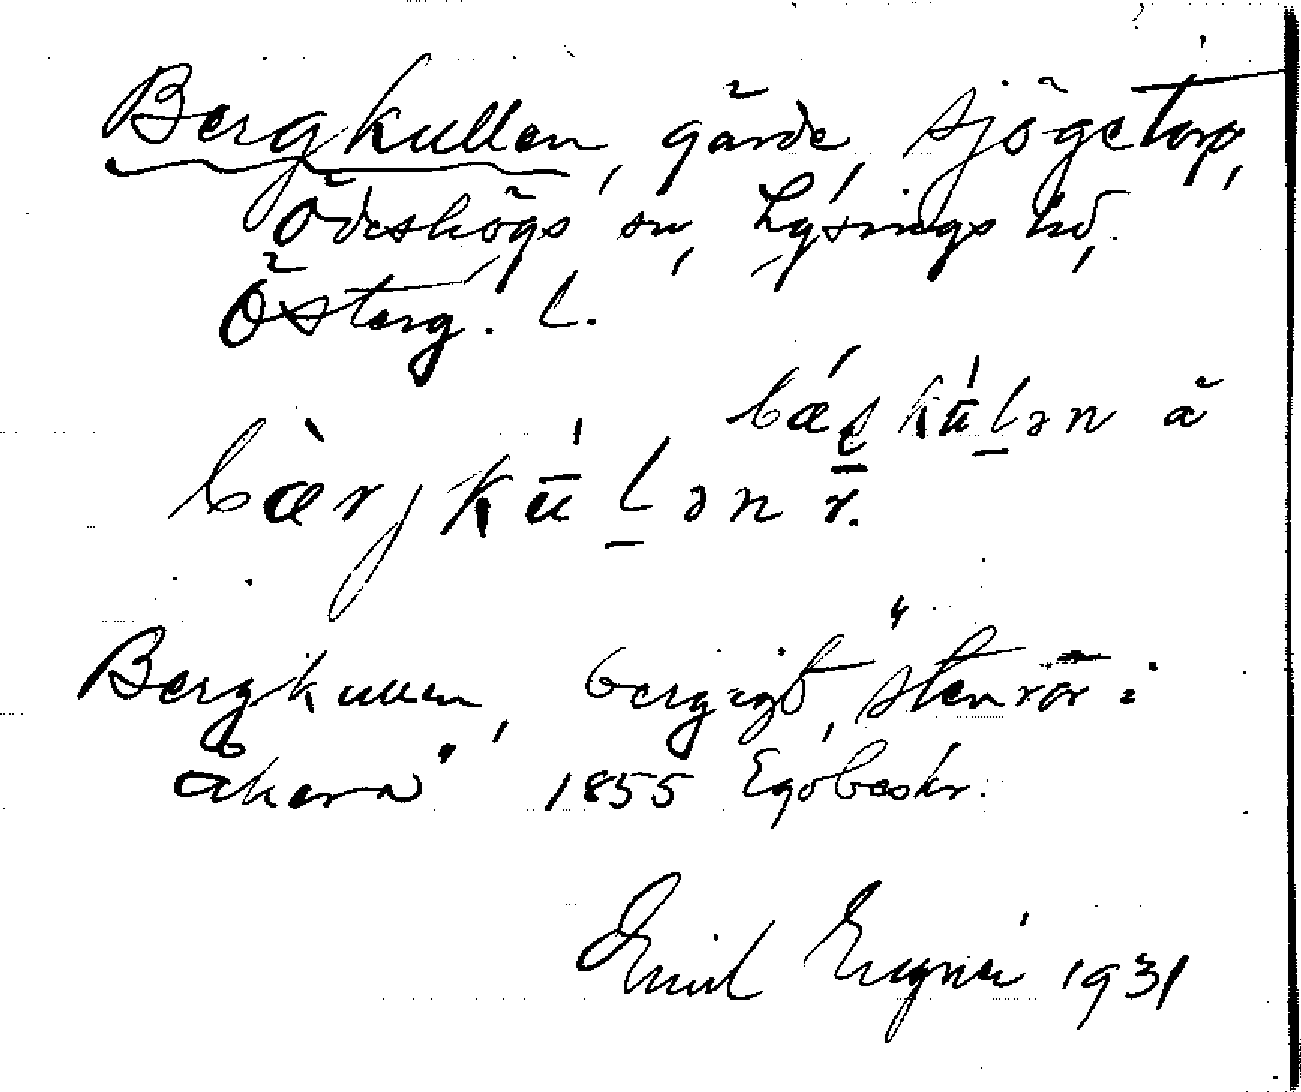 Bergkullen, gärde, Sjögetorp,
Ödeshögs sn, Lysings hd,
Österg. l.
bærjkūlən r.
Bergkullen, bergigt, "stenrör i
åkern" 1855 Egobeskr.
Emil 1931